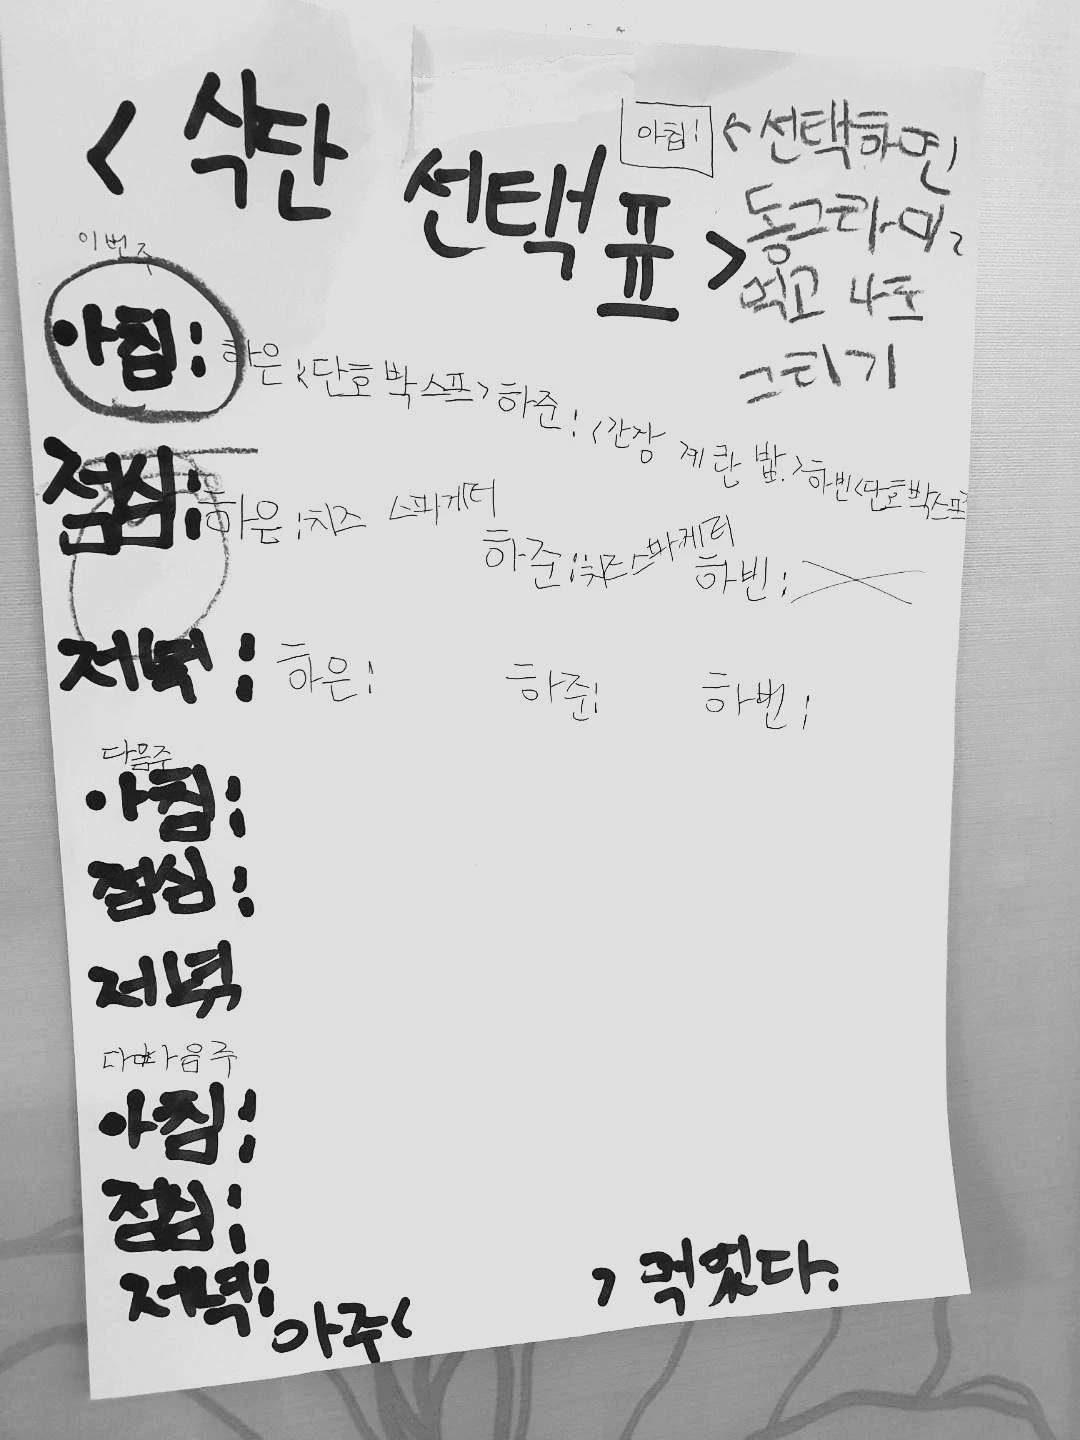 < 식단 선택표 >
아침! < 선택하면
동그라미,
먹고 나눈
그리기
이번주
아침: 하은:<단호박스프> 하준:<간장 계란 밥.> 하빈<단호박스프>
점심: 하은:치즈 스파게티 하준:치즈스파케티 하빈:
저녁: 하은: 하준: 하빈:
다음주
아침:
점심:
저녁
다다음주
아침:
점심:
저녁:
아주< > 먹었다.